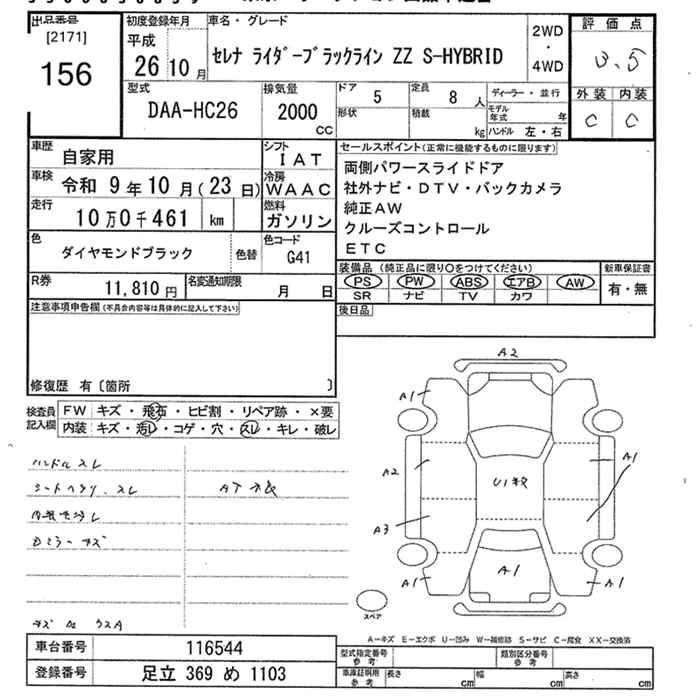 出品番号
[2171]
156
初度登録年月
平成
26 10 月
車名・グレード
セレナ ライダーブラックライン ZZ S-HYBRID
2WD
・
4WD
評 価 点
3.5
外装 内装
C C
型式
DAA-HC26
排気量
2000
CC
ドア
5
形状
定員
8 人
積載
kg
ディーラー・並行
モデル年式 年
ハンドル 左・右
車歴
自家用
シフト
IAT
車検
令和 9 年 10 月 ( 23 日)
冷房
WAAC
走行
10 万 0 千 461 km
燃料
ガソリン
色
ダイヤモンドブラック
色替
色コード
G41
R券
11,810 円
名変通知期限
月 日
セールスポイント(正常に機能するものに限ります)
両側パワースライドドア
社外ナビ・DTV・バックカメラ
純正AW
クルーズコントロール
ETC
装備品 (純正品に限り○をつけてください)
新車保証書
PS PW ABS エアB AW
有・無
SR ナビ TV カワ
後日品
注意事項申告欄 (不具合内容等は具体的に記入して下さい)
修復歴 有 〔箇所 〕
検査員
記入欄
FW キズ ・ 飛石 ・ ヒビ割 ・ リペア跡 ・ ×要
内装 キズ ・ 汚レ ・ コゲ ・ 穴 ・ スレ ・ キレ ・ 破レ
ハンドルスレ
シートヘタリ、スレ
A2
A1
A1
A2
A1
A3
A1
A1
A1
スペア
A-キズ E-エクボ U-凹み W-補修跡 S-サビ C-腐食 XX-交換済
車台番号 116544
登録番号 足立 369 め 1103
型式指定番号
参考
類別区分番号
参考
車庫証明用
参考
長さ cm 幅 cm 高さ cm